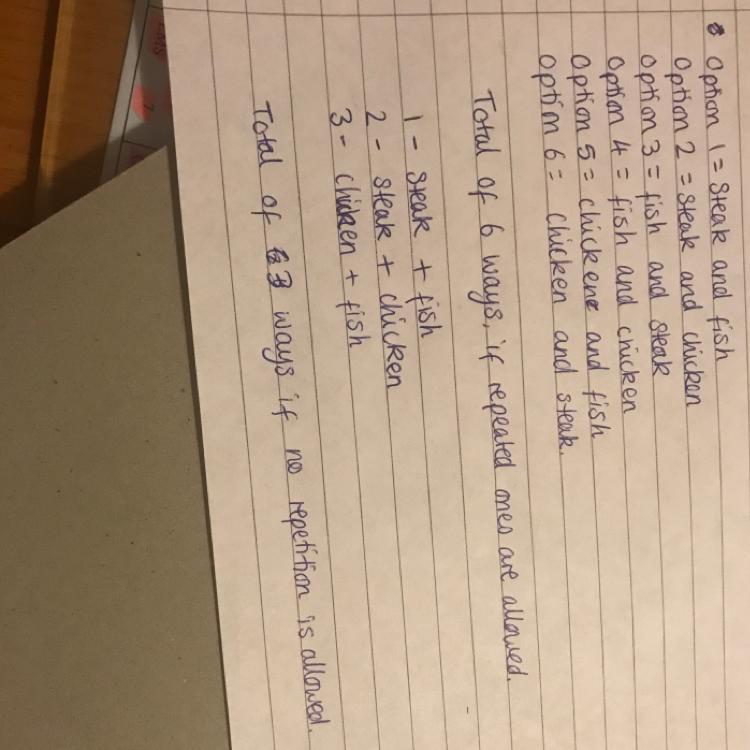 Option 1 = Steak and fish
Option 2 = Steak and chicken
Option 3 = fish and steak
Option 4 = fish and chicken
Option 5 = chicken and fish
Option 6 = chicken and steak.
Total of 6 ways, if repeated ones are allowed.
1 - steak + fish
2 - steak + chicken
3 - chicken + fish
Total of 3 ways if no repetition is allowed.